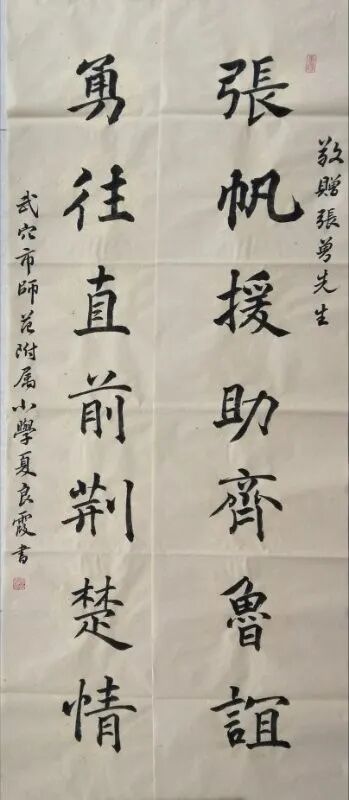 敬贈張勇先生
張帆援助齊魯誼
勇往直前荆楚情
武穴市師范附属小學夏良霞書